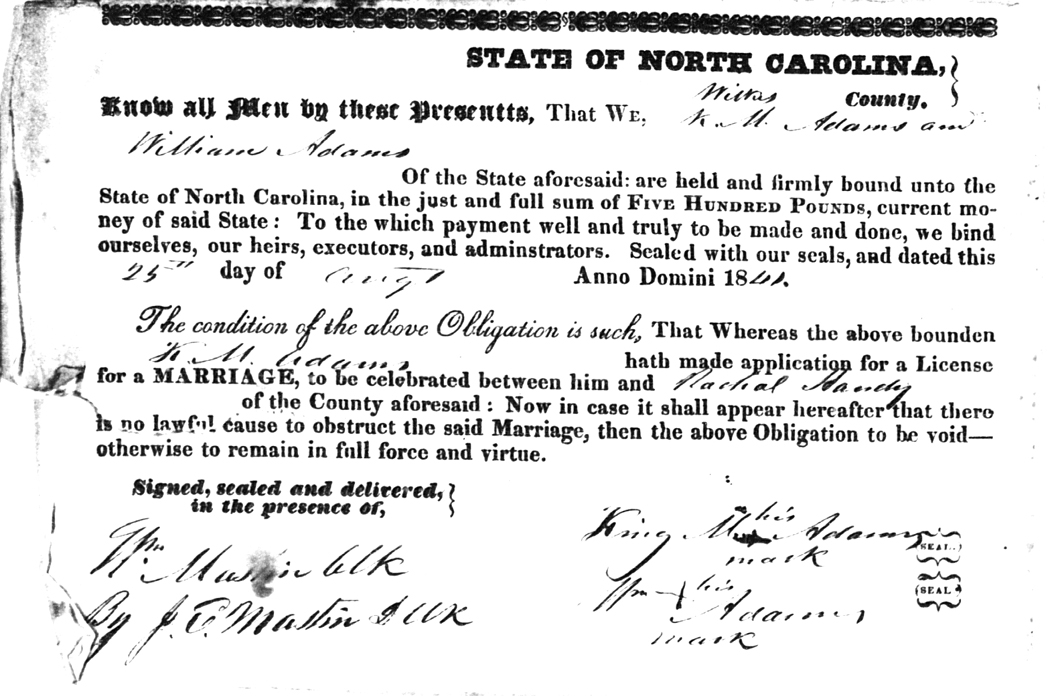 STATE OF NORTH CAROLINA,
Wilkes County.
Know all Men by these Presentts, That We, K. M. Adams and
William Adams
Of the State aforesaid: are held and firmly bound unto the
State of North Carolina, in the just and full sum of Five Hundred Pounds, current mo-
ney of said State: To the which payment well and truly to be made and done, we bind
ourselves, our heirs, executors, and adminstrators. Sealed with our seals, and dated this
25th day of Augt Anno Domini 184
The condition of the above Obligation is such, That Whereas the above bounden
K. M. Adams hath made application for a License
for a MARRIAGE, to be celebrated between him and Rachal Handy
of the County aforesaid: Now in case it shall appear hereafter that there
is no lawful cause to obstruct the said Marriage, then the above Obligation to be void—
otherwise to remain in full force and virtue.
Signed, sealed and delivered,
in the presence of,
Wm Mastin Clk
By J. E. Mastin D Clk
his
King M Adams SEAL.
mark
his
Wm + Adams SEAL
mark